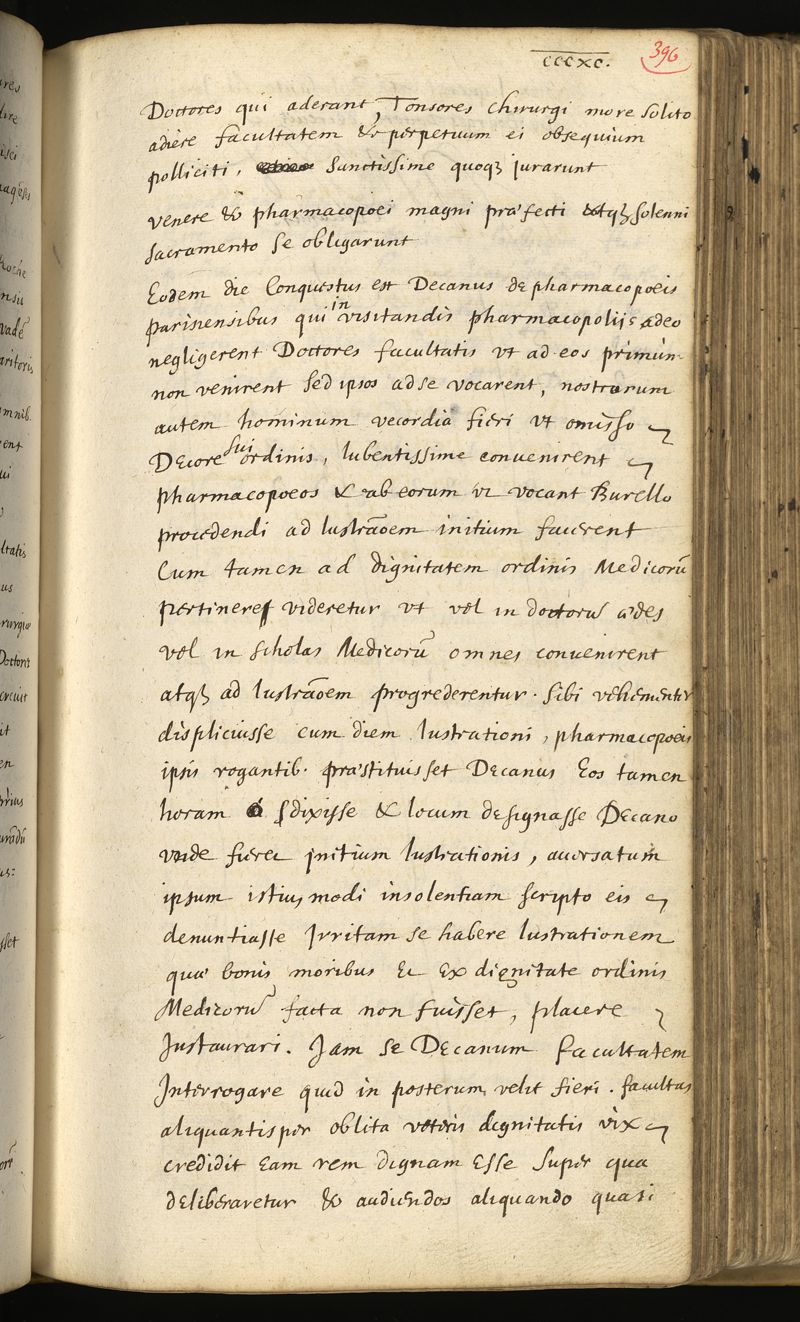 cccxc. 396
Doctores qui aderant, Tonsores chirurgi more solito
adiere facultatem & perpetuum ei obsequium
polliciti, sanctissime quoqꝫ jurarunt
venere & pharmacopoei magni præfecti atqꝫ solenni
sacramento se obligarunt
Eodem die Conquestus est Decanus de pharmacopoeis
parisiensibus qui in visitandis pharmacopoliis adeo
negligerent Doctores facultatis vt ad eos primùm
non venirent sed ipsos ad se vocarent, nostrarum
autem hominum vecordia fieri vt omisso
Decore sui ordinis, lubentissime convenirent
pharmacopoeos & ab eorum vt vocant Burello
procedendi ad lustrãoem initium facerent
Cum tamen ad dignitatem ordinis Medicorũ
pertinere videretur vt vel in doctorũ ædes
vel in scholas Medicorũ omnes convenirent
atqꝫ ad lustrãoem progrederentur. sibi vehementer
displicuisse cum diem lustrationi, pharmacopoeis
ipsis rogantib. præstituisset Decanus Eos tamen
horam dixisse & locum designasse Decano
vnde fieret initium lustrationis, aversatum
ipsum istiusmodi insolentiam scripto eis
denuntiasse Irritam se habere lustrationem
quæ bonis moribus Et Ex dignitate ordinis
Medicorũ facta non fuisset, placere
Instaurari. Jam se Decanum facultatem
Interrogare quid in posterum velit fieri. facultas
aliquantisper oblita veteris dignitatis vix
credidit Eam rem dignam Esse super qua
deliberaretur & audiendos aliquando quasi